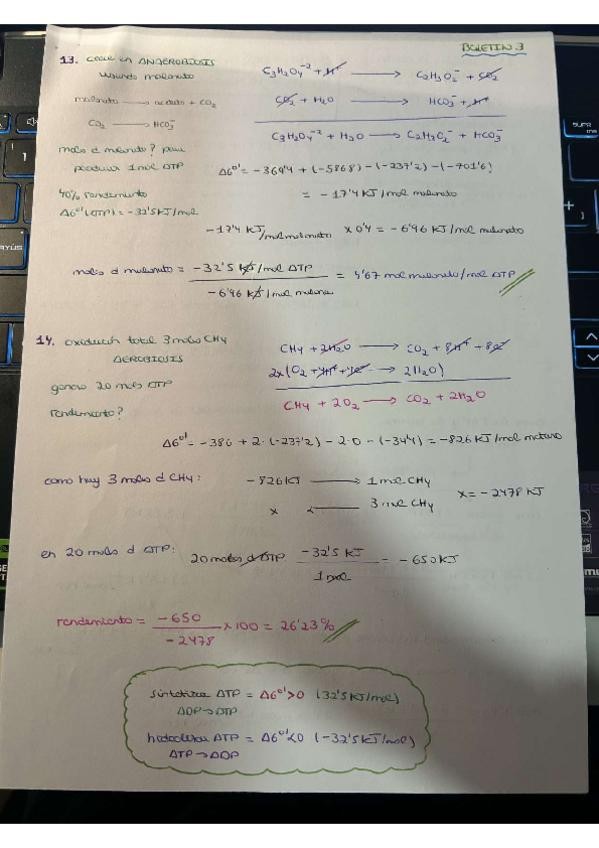 BOLETIN 3
13. crece en ANAEROBIOSIS
usando malonato
malonato → acetato + CO₂
CO₂ → HCO₃⁻
moles d malonato? para
producir 1 mol ATP
40% rendimiento
ΔG⁰'(ATP) = -32'5 KJ/mol
C₃H₂O₄⁻² + H⁺ → C₂H₃O₂⁻ + CO₂
CO₂ + H₂O → HCO₃⁻ + H⁺
C₃H₂O₄⁻² + H₂O → C₂H₃O₂⁻ + HCO₃⁻
ΔG⁰' = -369'4 + (-586'8) - (-237'2) - (-701'6)
= -17'4 KJ/mol malonato
-17'4 KJ/mol malonato x 0'4 = -6'96 KJ/mol malonato
moles d malonato = -32'5 KJ/mol ATP
-6'96 KJ/mol malona
= 4'67 mol malonato/mol ATP
14. oxidación total 3 moles CH₄
AEROBIOSIS
genera 20 moles ATP
rendimiento?
CH₄ + 2H₂O → CO₂ + 8H⁺ + 8e⁻
2x(O₂ + 4H⁺ + 4e⁻ → 2H₂O)
CH₄ + 2O₂ → CO₂ + 2H₂O
ΔG⁰' = -386 + 2·(-237'2) - 2·0 - (-34'4) = -826 KJ/mol metano
como hay 3 moles d CH₄:
-826 KJ → 1 mol CH₄
x ← 3 mol CH₄
x = -2478 KJ
en 20 moles d ATP:
20 moles d ATP · -32'5 KJ
1 mol
= -650 KJ
rendimiento = -650
-2478
x 100 = 26'23%
sintetizar ATP = ΔG⁰' > 0 (32'5 KJ/mol)
ADP → ATP
hidrolizar ATP = ΔG⁰' < 0 (-32'5 KJ/mol)
ATP → ADP